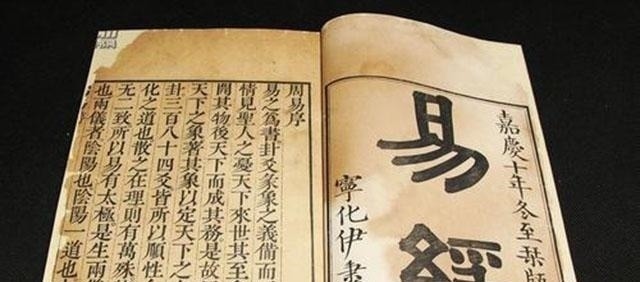 嘉慶十年冬至栞版
易經
寧化伊秉
周易序
易之爲書卦爻彖象之義備而
情見聖人之憂天下來世其至
開其物後天下而成其務是故
天下之象著其象以定天下之
卦三百八十四爻皆所以順性
化之道也散之在理則有萬殊
无二致所以易有太極是生兩
也兩儀者陰陽也陰陽一道也